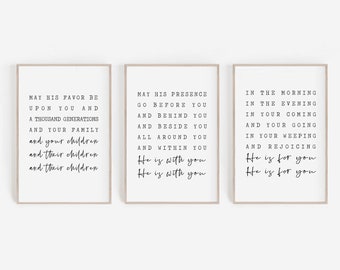 MAY HIS FAVOR BE
UPON YOU AND
A THOUSAND GENERATIONS
AND YOUR FAMILY
and your children
and their children
and their children
MAY HIS PRESENCE
GO BEFORE YOU
AND BEHIND YOU
AND BESIDE YOU
ALL AROUND YOU
AND WITHIN YOU
He is with you
He is with you
IN THE MORNING
IN THE EVENING
IN YOUR COMING
AND YOUR GOING
IN YOUR WEEPING
AND REJOICING
He is for you
He is for you